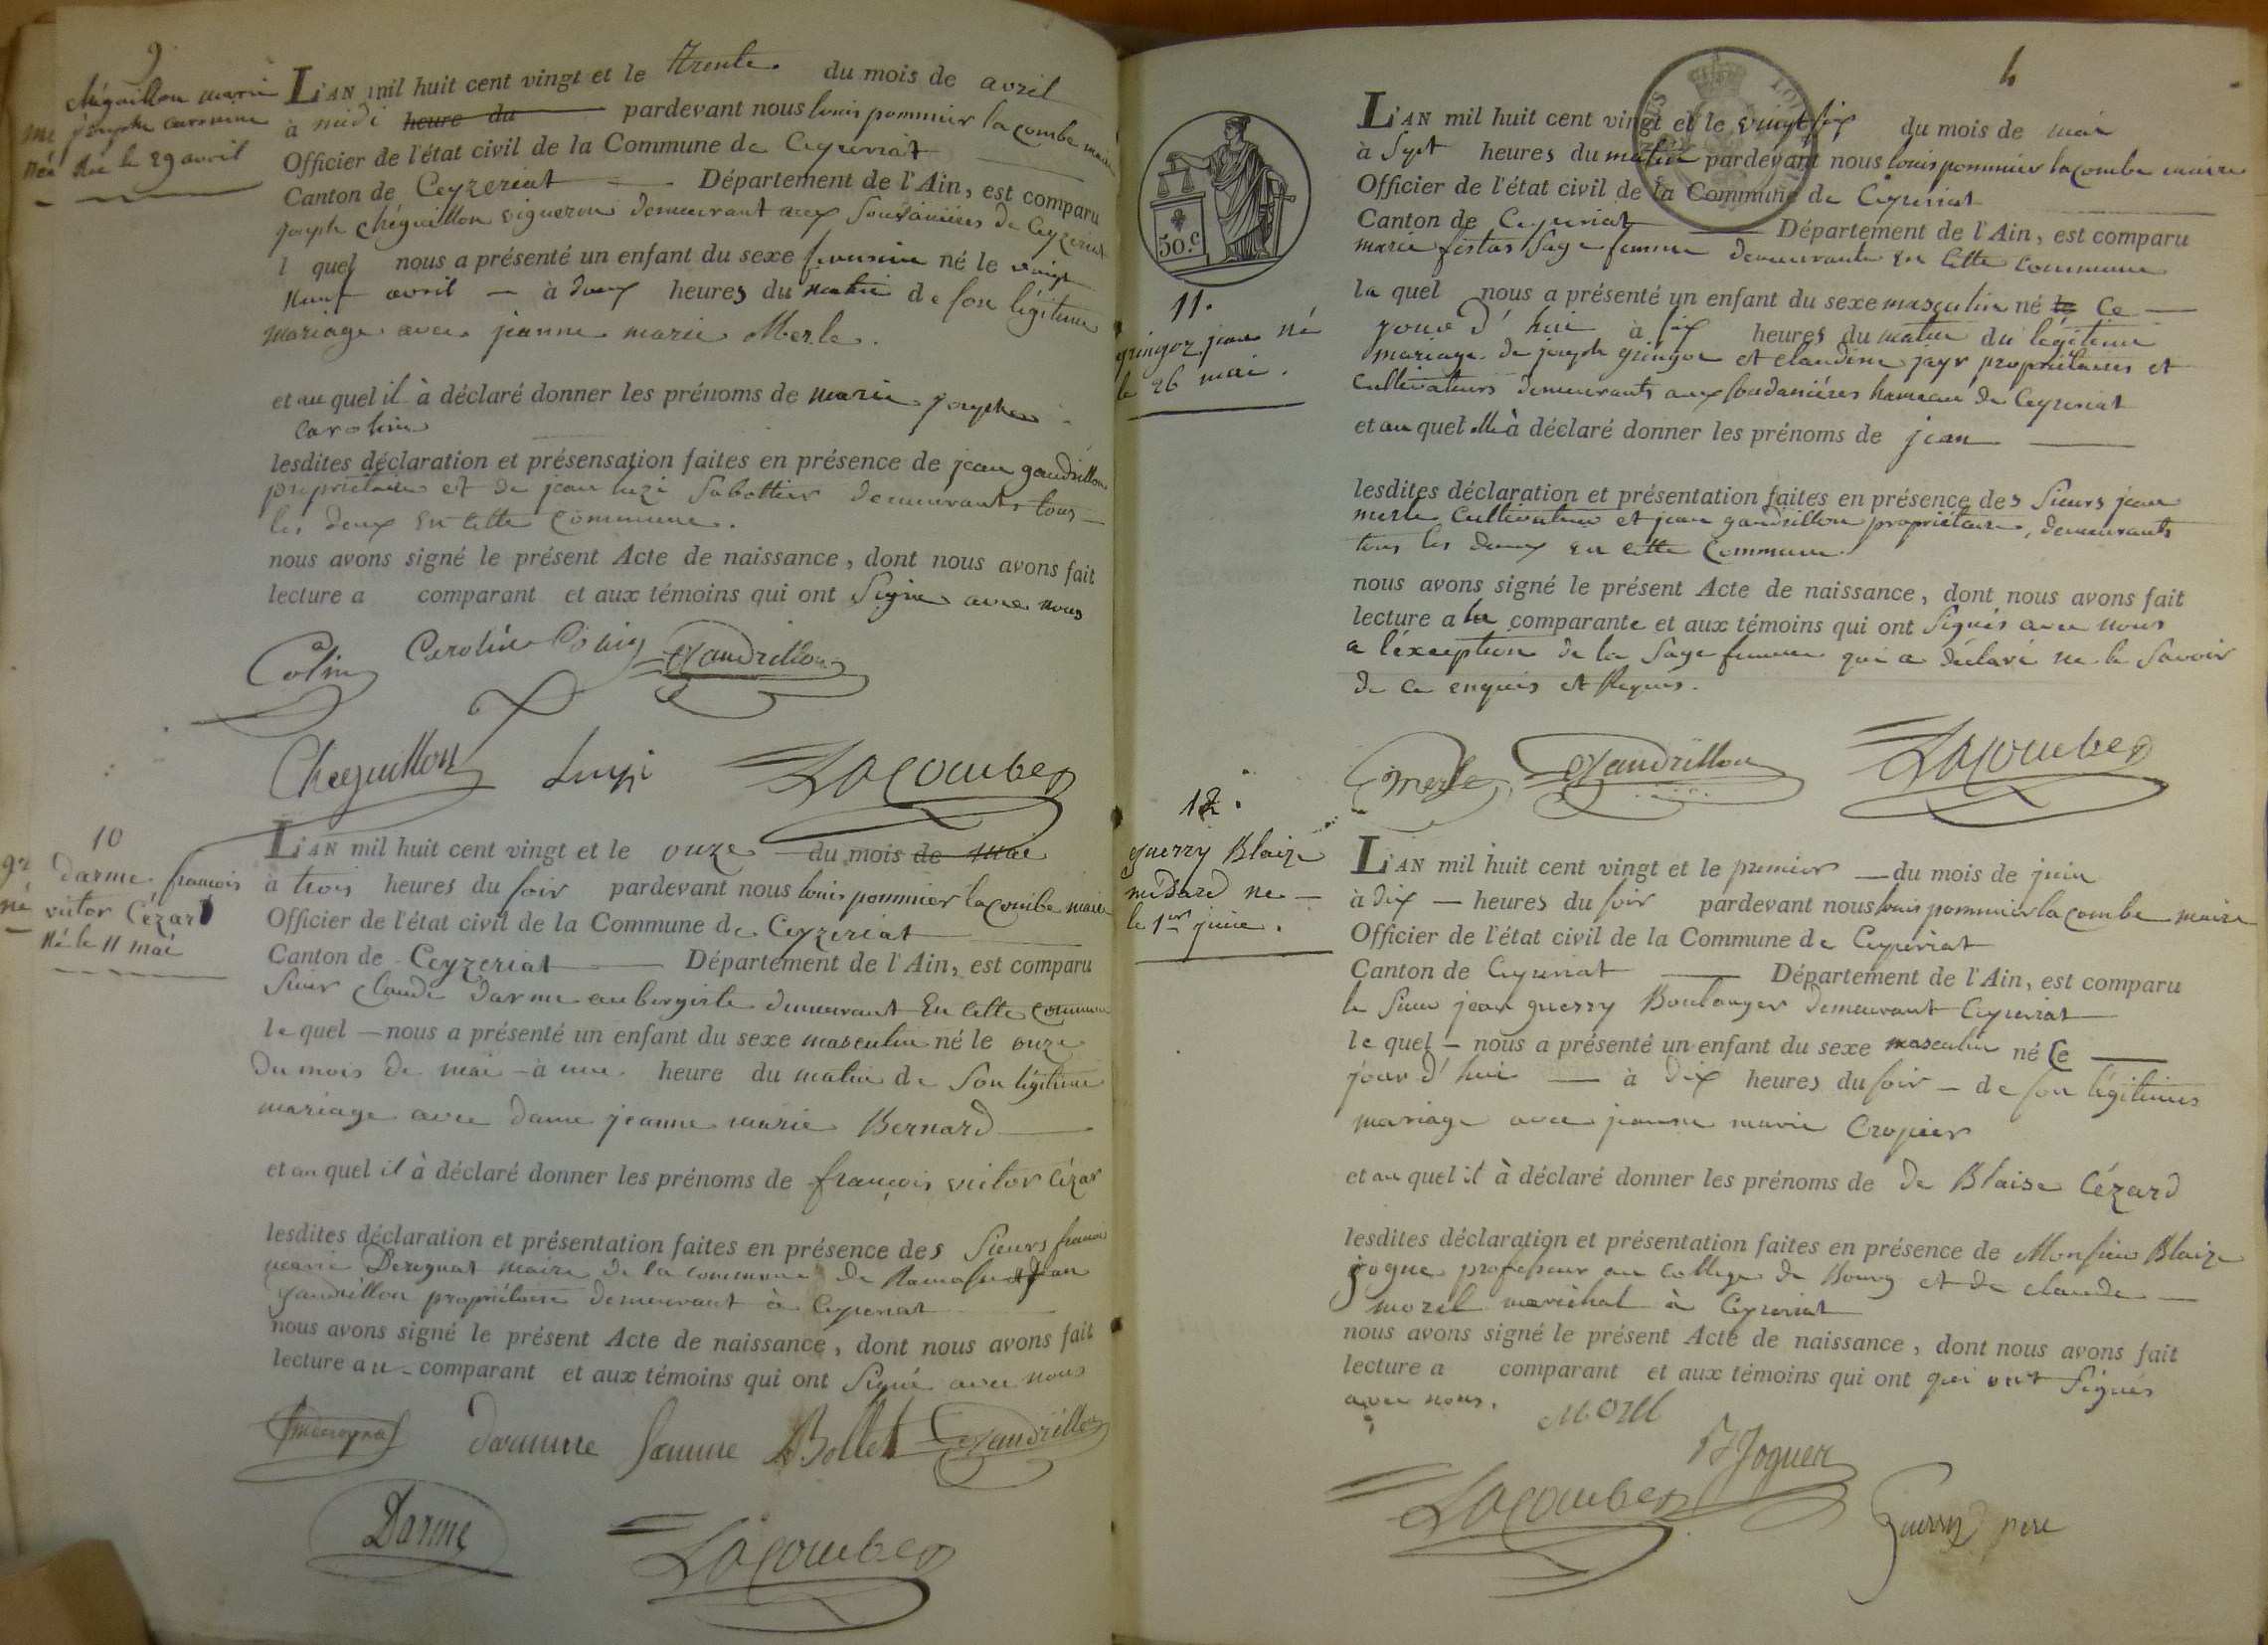 9
Chéguillon marie
josephe caroline
Née le 29 avril
L'AN mil huit cent vingt et le trente du mois de avril
à midi heure du pardevant nous louis pommier lacombe maire
Officier de l'état civil de la Commune de Ceyzeriat
Canton de Ceyzeriat Département de l'Ain, est comparu
joseph chéguillon vigneron demeurant aux Soudanières de Ceyzeriat
l quel nous a présenté un enfant du sexe feminin né le vingt
neuf avril à deux heures du matin de son légitime
mariage avec jeanne marie Merle.
et au quel il à déclaré donner les prénoms de marie josephe
caroline
lesdites déclaration et présensation faites en présence de jean gandrillon
propriétaire et de jean luzi Sabottier demeurants tous
les deux en cette commune.
nous avons signé le présent Acte de naissance, dont nous avons fait
lecture a comparant et aux témoins qui ont Signé avec nous
Colin Caroline Colin Gandrillon
Cheguillon Luizi Lacombe
10
Darme françois
victor Cézard
Né le 11 mai
L'AN mil huit cent vingt et le onze du mois de mai
à trois heures du soir pardevant nous louis pommier lacombe maire
Officier de l'état civil de la Commune de Ceyzeriat
Canton de Ceyzeriat Département de l'Ain, est comparu
Sieur claude darme aubergiste demeurant En cette commune
le quel nous a présenté un enfant du sexe masculin né le onze
du mois de mai à une heure du matin de Son légitime
mariage avec dame jeanne marie Bernard
et au quel il à déclaré donner les prénoms de françois victor Cézar
lesdites déclaration et présentation faites en présence des Sieurs francois
marie Derognat maire de la commune de Ramasse et jean
gandrillon propriétaire demeurant à Ceyzeriat
nous avons signé le présent Acte de naissance, dont nous avons fait
lecture au comparant et aux témoins qui ont Signé avec nous
Darmne femme Bollet Gandrillon
Darme Lacombe
6
50.c
11.
gringoz jean né
le 26 mai.
L'AN mil huit cent vingt et le vingt six du mois de mai
à Sept heures du matin pardevant nous louis pommier lacombe maire
Officier de l'état civil de la Commune de Ceyzeriat
Canton de Ceyzeriat Département de l'Ain, est comparu
marie festas Sage femme demeurante en cette commune
la quel nous a présenté un enfant du sexe masculin né le Ce
jour d'hui à six heures du matin du légitime
mariage de joseph gringoz et claudine jayr propriétaires et
cultivateurs demeurants aux soudanières hameau de Ceyzeriat
et au quel elle à déclaré donner les prénoms de jean
lesdites déclaration et présentation faites en présence des Sieurs jean
merle Cultivateur et jean gandrillon propriétaire, demeurants
tous les deux en cette Commune
nous avons signé le présent Acte de naissance, dont nous avons fait
lecture a la comparante et aux témoins qui ont Signés avec nous
a l'éxception de la Sage femme qui a déclaré ne le Savoir
de ce enquis et Requis.
merle Gandrillon Lacombe
12.
guerry Blaize
medard né
le 1er juin.
L'AN mil huit cent vingt et le premier du mois de juin
à dix heures du soir pardevant nous louis pommier lacombe maire
Officier de l'état civil de la Commune de Ceyzeriat
Canton de Ceyzeriat Département de l'Ain, est comparu
le Sieur jean guerry Boulanger demeurant Ceyzeriat
le quel nous a présenté un enfant du sexe masculin né Ce
jour d'hui à dix heures du soir de son légitimes
mariage avec jeanne marie Cropier
et au quel il à déclaré donner les prénoms de de Blaise Cézard
lesdites déclaration et présentation faites en présence de Monsieur Blaize
jogue professeur au college de Bourg et de claude
morel marechal à Ceyzeriat
nous avons signé le présent Acte de naissance, dont nous avons fait
lecture a comparant et aux témoins qui ont qui ont Signés
avec nous. Morel
B Joguet
Lacombe Guerry pere